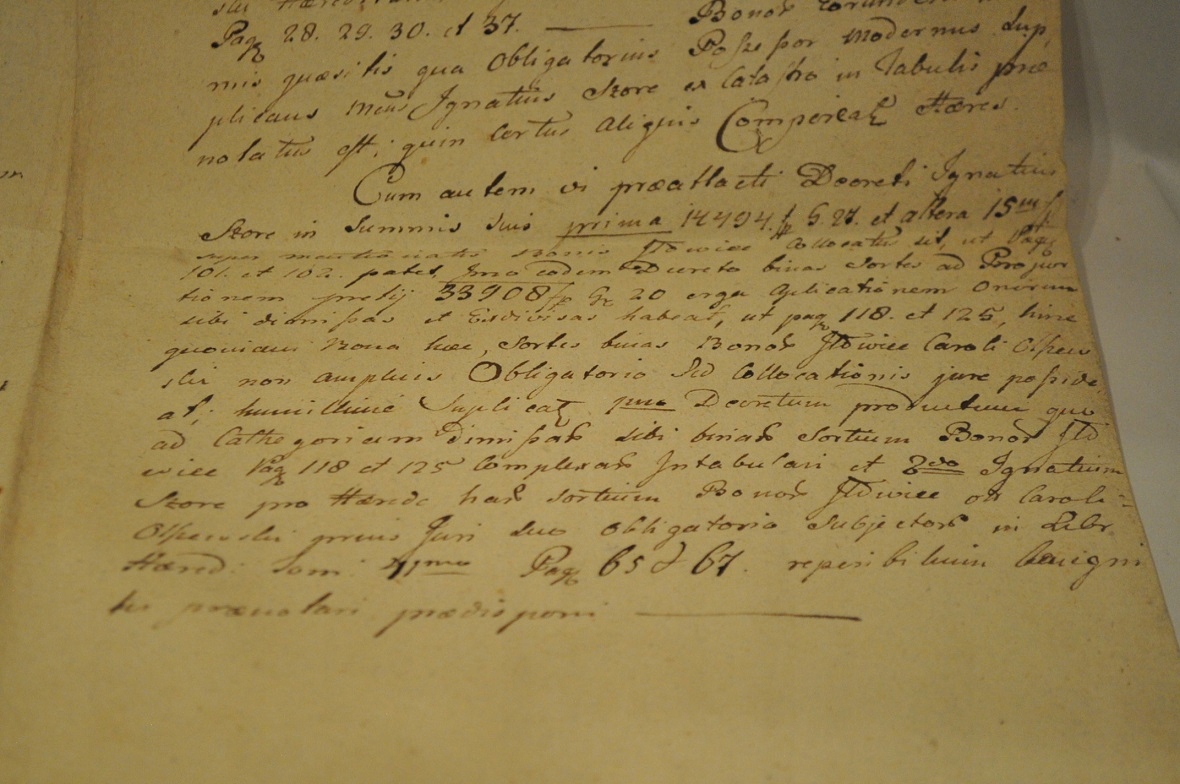 Pag 28. 29. 30. et 37. — Bonor
mis quæsitis qua Obligatorius Possessor modernus Sup
plicans meus Ignatius Skore ex Catastro in Tabulis præ
notatus est, quin Certus aliquis Compereat Hæres.
Cum autem vi præattacti Decreti Ignatius
Skore in Summis suis prima 14494 f 5. 27. et altera 15
Collocatus sit, ut Pag
101. et 102. patet, Imo eodem Decreto binas Sortes ad Propor
tionem pretij 33908 f 20 erga aplicationem Onerum
sibi dimissas et Exdivisas habeat, ut pag 118. et 125, hinc
quoniam Bona hæc, Sortes binas Bonor Caroli Olszew
ski non amplius Obligatorio Sed Collocationis jure posside
at; humillime Suplicat pmo Decretum productum quo
ad Cathegoricam dimissar sibi binar Sortium Bonor
wiec Pag 118 et 125 Complexar Intabulari et 2do Ignatium
Skore pro Hærede har Sortium Bonor oli Caroli
Olszewski prius Juri suo obligatorio Subjectar in Libr
Hæred: Pag 65 & 67. reperibilium benigni
us prænotari prædisponi —